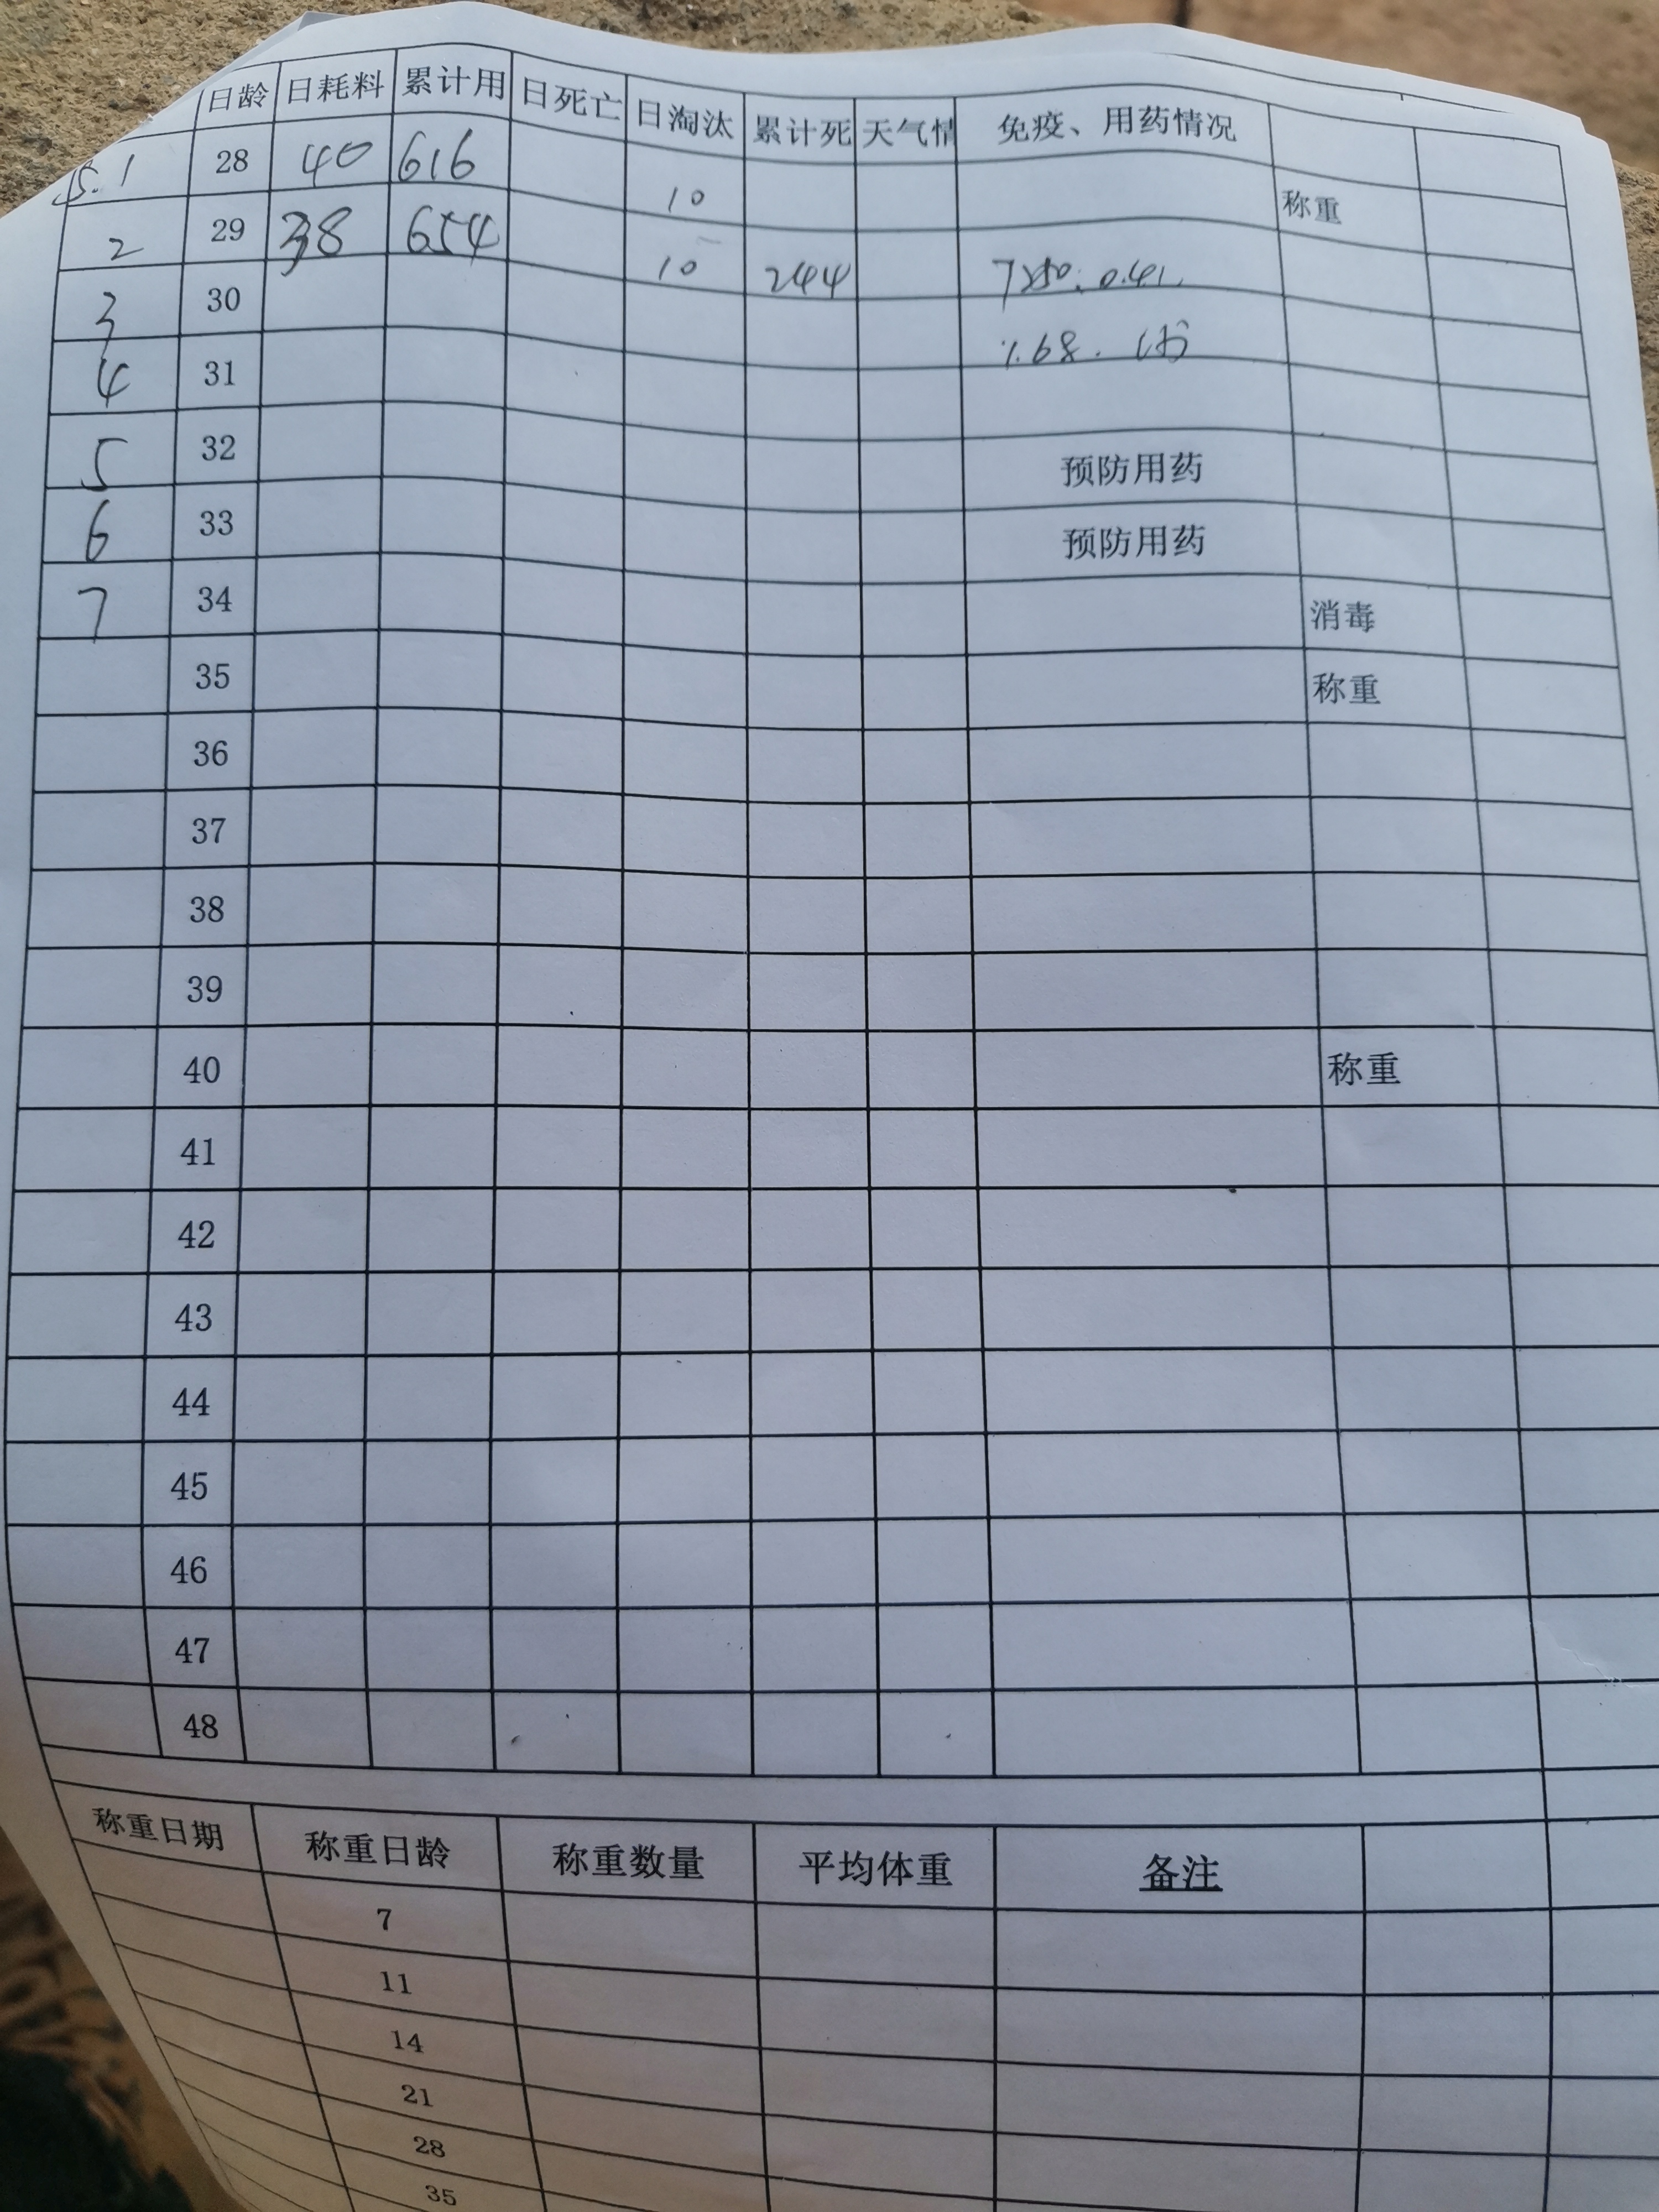 日龄 日耗料 累计用 日死亡 日淘汰 累计死 天气情 免疫、用药情况
5.1 28 40 616 10 称重
2 29 38 654 10 244
3 30 1.68.
4 31
5 32 预防用药
6 33 预防用药
7 34 消毒
35 称重
36
37
38
39
40 称重
41
42
43
44
45
46
47
48
称重日期 称重日龄 称重数量 平均体重 备注
7
11
14
21
28
35